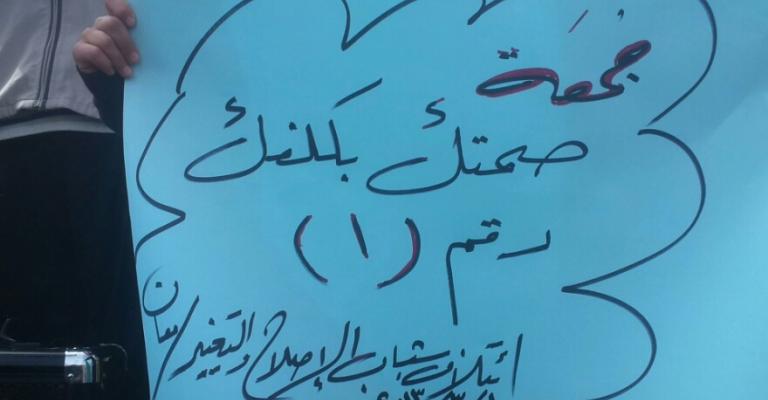 جمعة
صمتك بكلفك
رقم (١)
ائتلاف شباب الإصلاح والتغيير/